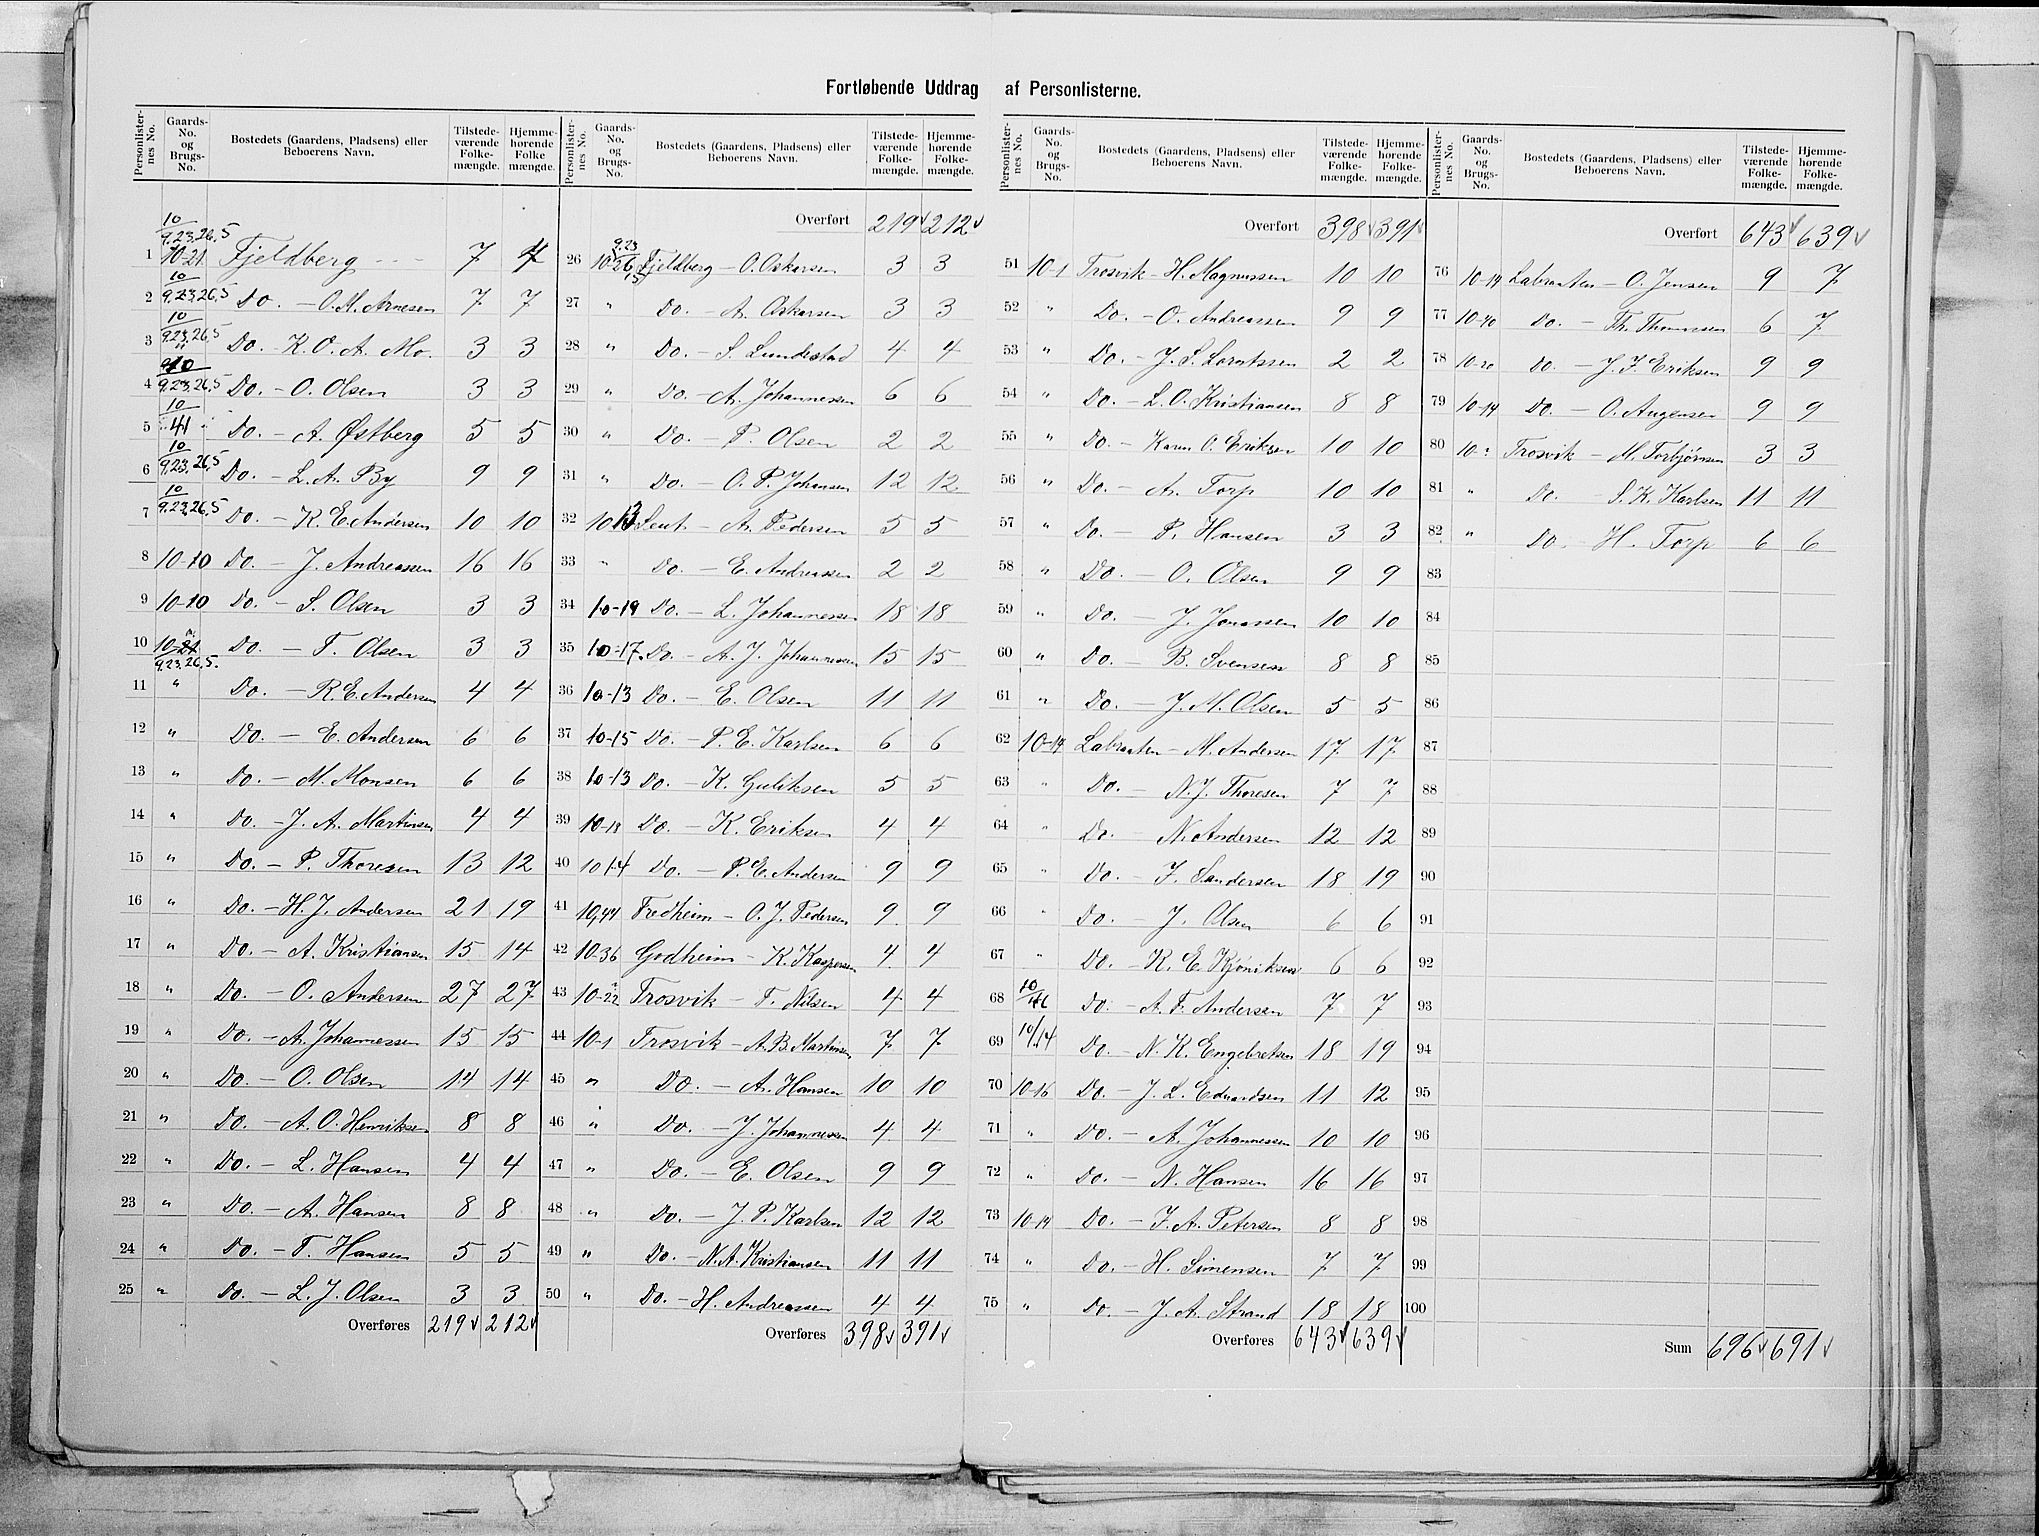 Fortløbende Uddrag af Personlisterne.
Personlister-nes No. Gaards-No. og Brugs-No. Bostedets (Gaardens, Pladsens) eller Beboerens Navn. Tilstede-værende Folke-mængde. Hjemme-hørende Folke mængde.
10/9,23,26,5
1 10-21 Fjeldberg - - - 7 4
10/
2 9,23,26,5 Do. - O. M. Arnesen 7 7
10/
3 9,23,26,5 " Do. - K. O. A. Mo. 3 3
10/
4 9,23,26,5 Do. - O. Olsen 3 3
10/
5 41 Do. - A. Østberg 5 5
10/
6 9,23,26,5 Do. - L. A. By 9 9
10/
7 9,23,26,5 Do. - K. E. Andersen 10 10
8 10-10 Do. - J. Andreassen 16 16
9 10-10 Do. - S. Olsen 3 3
10 10-21 9,23,26,5. Do. - T. Olsen 3 3
11 " Do. - R. E. Andersen 4 4
12 " Do. - E. Andersen 6 6
13 " Do. - M. Monsen 6 6
14 " Do. - J. A. Martinsen 4 4
15 " Do. - P. Thoresen 13 12
16 " Do. - H. J. Andersen 21 19
17 " Do. - A. Kristiansen 15 14
18 " Do. - O. Andersen 27 27
19 " Do. - A. Johannessen 15 15
20 " Do. - O. Olsen 14 14
21 " Do. - A. O. Henriksen 8 8
22 " Do. - L. Hansen 4 4
23 " Do. - A. Hansen 8 8
24 " Do. - T. Hansen 5 5
25 " Do. - L. J. Olsen 3 3
Overføres 219 212
Personlister-nes No. Gaards-No. og Brugs-No. Bostedets (Gaardens, Pladsens) eller Beboerens Navn. Tilstede-værende Folke-mængde. Hjemme-hørende Folke-mængde.
Overført 219 212
26 10-26,5 9,23 Fjeldberg - O. Oskarsen 3 3
27 " Do. - A. Oskarsen 3 3
28 " Do. - S. Lundestad 4 4
29 " Do. - A. Johannessen 6 6
30 " Do. - P. Olsen 2 2
31 " Do. - O. P. Johansen 12 12
32 10 13 Leut - A. Pedersen 5 5
33 " Do. - E. Andreassen 2 2
34 10-19 Do. - L. Johannessen 18 18
35 10-17 Do. - A. J. Johannessen 15 15
36 10-13 Do. - E. Olsen 11 11
37 10-15 Do. - P. E. Karlsen 6 6
38 10-13 Do. - K. Guliksen 5 5
39 10-18 Do. - K. Eriksen 4 4
40 10 14 Do. - P. E. Andersen 9 9
41 10,44 Fredheim - O. J. Pedersen 9 9
42 10-36 Godheim - K. Kaspersen 4 4
43 10-22 Trosvik - T. Nilsen 4 4
44 10-1 Trosvik - A. B. Martinsen 7 7
45 " Do. - A. Hansen 10 10
46 " Do. - J. Johannessen 4 4
47 " Do. - E. Olsen 9 9
48 " Do. - J. P. Karlsen 12 12
49 " Do. - N. A. Kristiansen 11 11
50 " Do. - H. Andreassen 4 4
Overføres 398 391
Personlister-nes No. Gaards-No. og Brugs-No. Bostedets (Gaardens, Pladsens) eller Beboerens Navn. Tilstede-værende Folke-mængde. Hjemme-hørende Folke-mængde.
Overført 398 391
51 10-1 Trosvik - H. Magnussen 10 10
52 " Do. - O. Andreassen 9 9
53 " Do. - J. S. Lorntssen 2 2
54 " Do. - L. O. Kristiansen 8 8
55 " Do. - Karen O. Eriksen 10 10
56 " Do. - A. Torp 10 10
57 " Do. - P. Hansen 3 3
58 " Do. - O. Olsen 9 9
59 " Do. - J. Jonassen 10 10
60 " Do. - B. Svensen 8 8
61 " Do. - J. M. Olsen 5 5
62 10-14 Labraaten - M. Andersen 17 17
63 " Do. - N. J. Thoresen 7 7
64 " Do. - N. Andersen 12 12
65 " Do. - J. Sandersen 18 19
66 " Do. - J. Olsen 6 6
67 " Do. - K. E. Kjöniksen 6 6
68 10/46 Do. - A. F. Andersen 7 7
69 10/14 Do. - N. K. Engebretsen 18 19
70 10-16 Do. - J. L. Edvardsen 11 12
71 " Do. - A. Johannessen 10 10
72 " Do. - N. Hansen 16 16
73 10-14 Do. - J. A. Petersen 8 8
74 " Do. - H. Simensen 7 7
75 " Do. - J. A. Strand 18 18
Overføres 643 639
Personlister-nes No. Gaards-No. og Brugs-No. Bostedets (Gaardens, Pladsens) eller Beboerens Navn. Tilstede-værende Folke-mængde. Hjemme-hørende Folke-mængde.
Overført 643 639
76 10-14 Labraaten - O. Jensen 9 7
77 10-40 Do. - Th. Thomassen 6 7
78 10-20 Do. - J. F. Eriksen 9 9
79 10-14 Do. - O. Augensen 9 9
80 10-2 Trosvik - M. Torbjörnsen 3 3
81 " Do. - S. K. Karlsen 11 11
82 " Do. - H. Torp 6 6
83
84
85
86
87
88
89
90
91
92
93
94
95
96
97
98
99
100
Sum 696 691